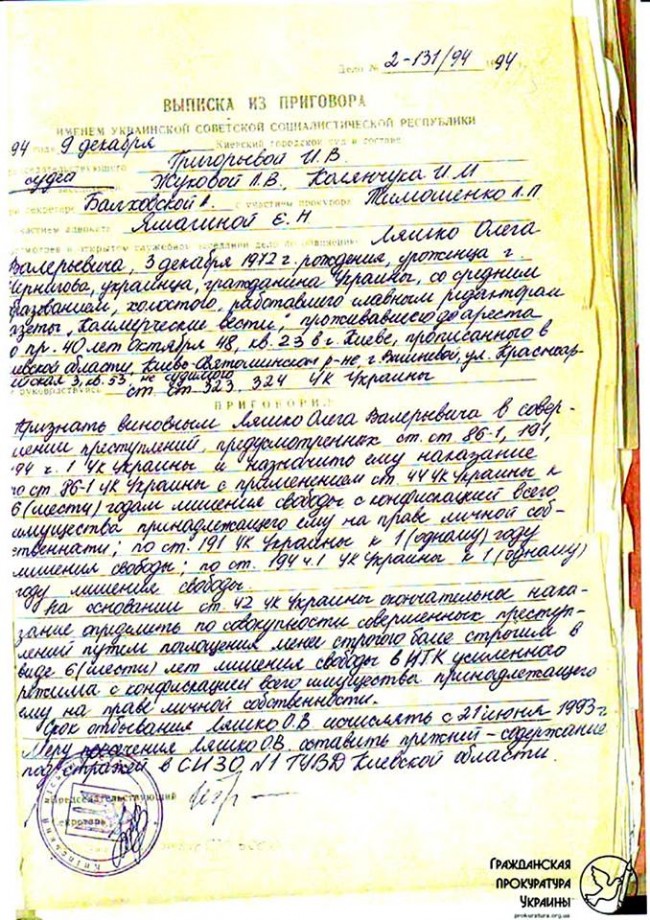 Дело № 2-131/94 1994 г.
ВЫПИСКА ИЗ ПРИГОВОРА
ИМЕНЕМ УКРАИНСКОЙ СОВЕТСКОЙ СОЦИАЛИСТИЧЕСКОЙ РЕСПУБЛИКИ
94 года 9 декабря Киевский городской суд в составе
председательствующего Григорьевой И.В.
судей Жуковой Л.В., Колянчука И.М
при секретаре Балховской А. с участием прокурора Тимошенко Л.П
участием адвоката Ямагиной Е.Н
рассмотрев в открытом судебном заседании дело по обвинению Ляшко Олега
Валерьевича, 3 декабря 1972 г. рождения, уроженца г.
Чернигова, украинца, гражданина Украины, со средним
образованием, холостого, работавшего главным редактором
газеты "Коммерческие вести", проживавшего до ареста
по пр. 40 лет Октября 48, кв. 23 в г. Киеве, прописанного в
Киевской области, Киево-Святошинском р-не г. Вишневый, ул. Красноар-
мейская 3, кв. 53, не судимого
руководствуясь ст. ст. 323, 324 УК Украины
ПРИГОВОРИЛ
Признать виновным Ляшко Олега Валерьевича в совер-
шении преступлений, предусмотренных ст. ст. 86-1, 191,
194 ч. 1 УК Украины и назначить ему наказание
по ст. 86-1 УК Украины с применением ст. 44 УК Украины к
6 (шести) годам лишения свободы с конфискацией всего
имущества принадлежащего ему на праве личной соб-
ственнати; по ст. 191 УК Украины к 1 (одному) году
лишения свободы; по ст. 194 ч. 1 УК Украины к 1 (одному)
году лишения свободы.
На основании ст. 42 УК Украины окончательное нака-
зание определить по совокупности совершенных преступ-
лений путем поглощения менее строгого более строгим в
виде 6 (шести) лет лишения свободы в ИТК усиленного
режима с конфискацией всего имущества принадлежащего
ему на праве личной собственности.
Срок отбывания Ляшко О.В. исчислять с 21 июня 1993 г.
Меру пресечения Ляшко О.В. оставить прежней - содержание
под стражей в СИЗО №1 ГУВД Киевской области.
Председательствующий
Секретарь
ГРАЖДАНСКАЯ
ПРОКУРАТУРА
УКРАИНЫ
prokuratura.org.ua